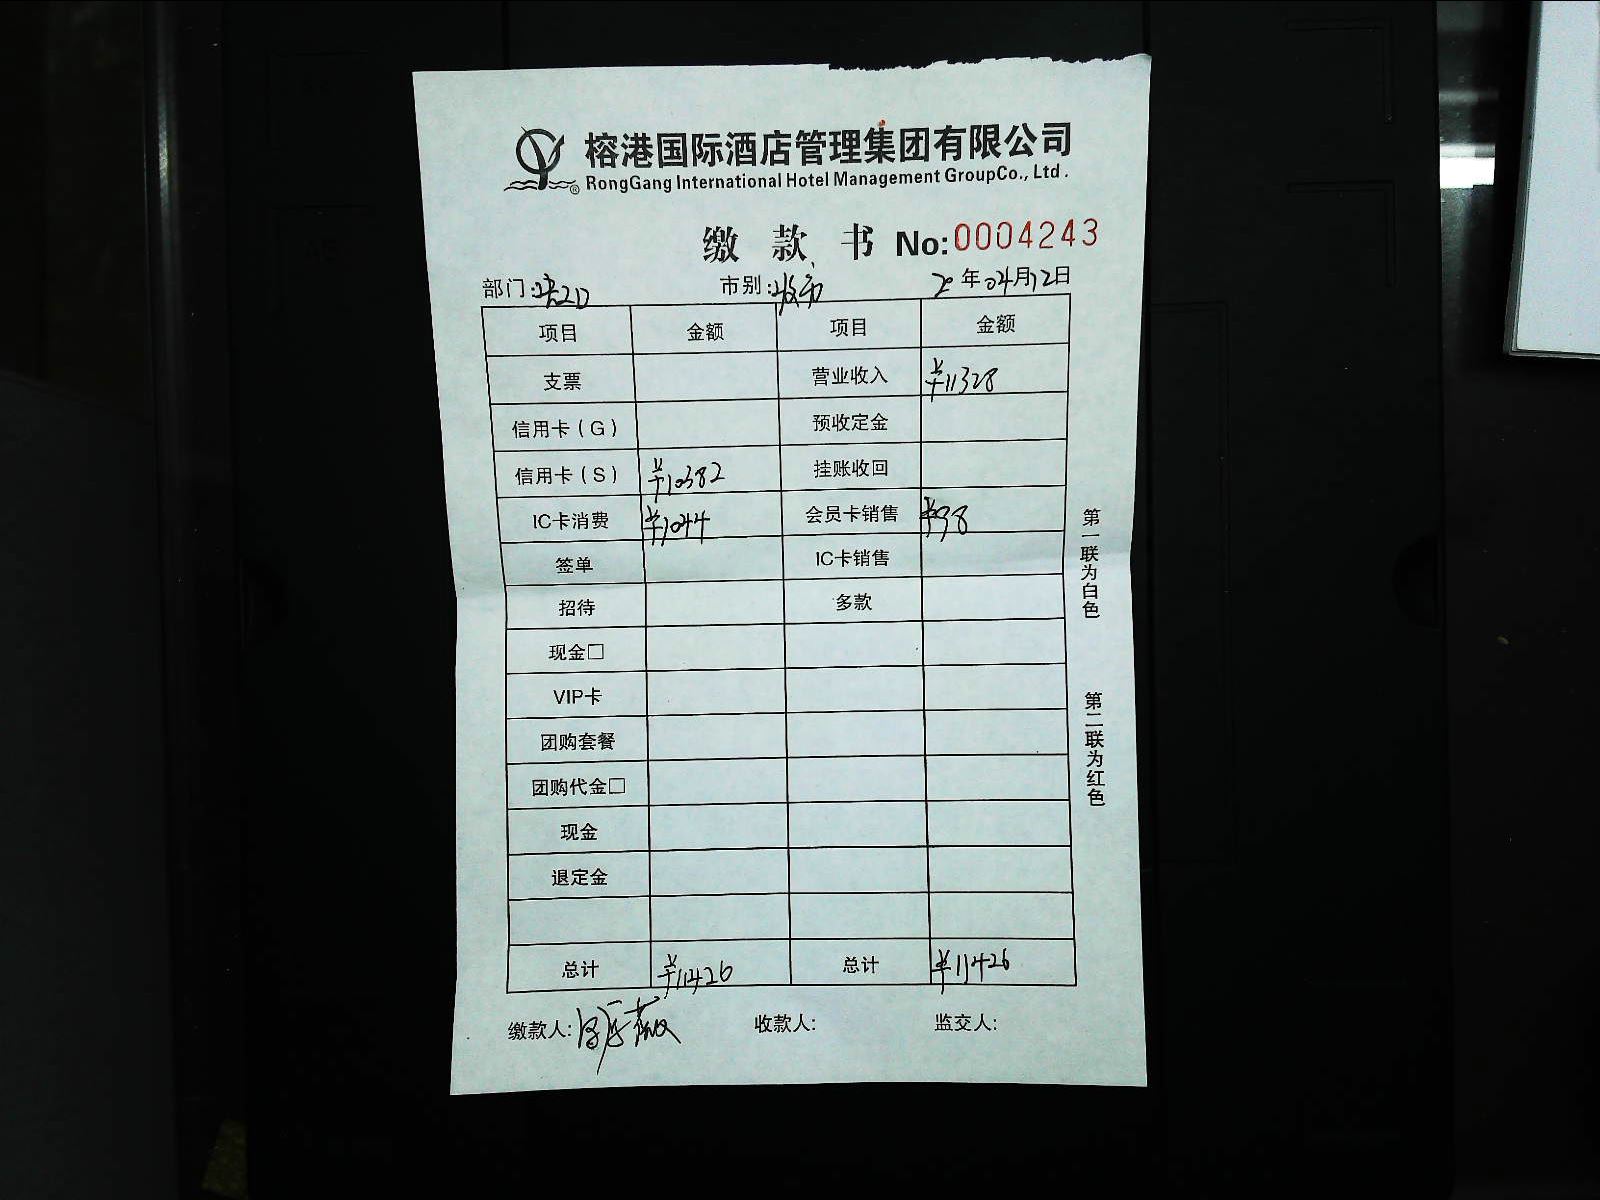 榕港国际酒店管理集团有限公司
RongGang International Hotel Management GroupCo., Ltd.
缴 款 书 No:0004243
部门: 市别: 夜市 20年04月12日
项目 金额 项目 金额
支票 营业收入 ¥11328
信用卡(G) 预收定金
信用卡(S) ¥10382 挂账收回
IC卡消费 ¥1044 会员卡销售 ¥98
签单 IC卡销售
招待 多款
现金□
VIP卡
团购套餐
团购代金□
现金
退定金
总计 ¥11426 总计 ¥11426
缴款人: 收款人: 监交人:
第一联为白色
第二联为红色